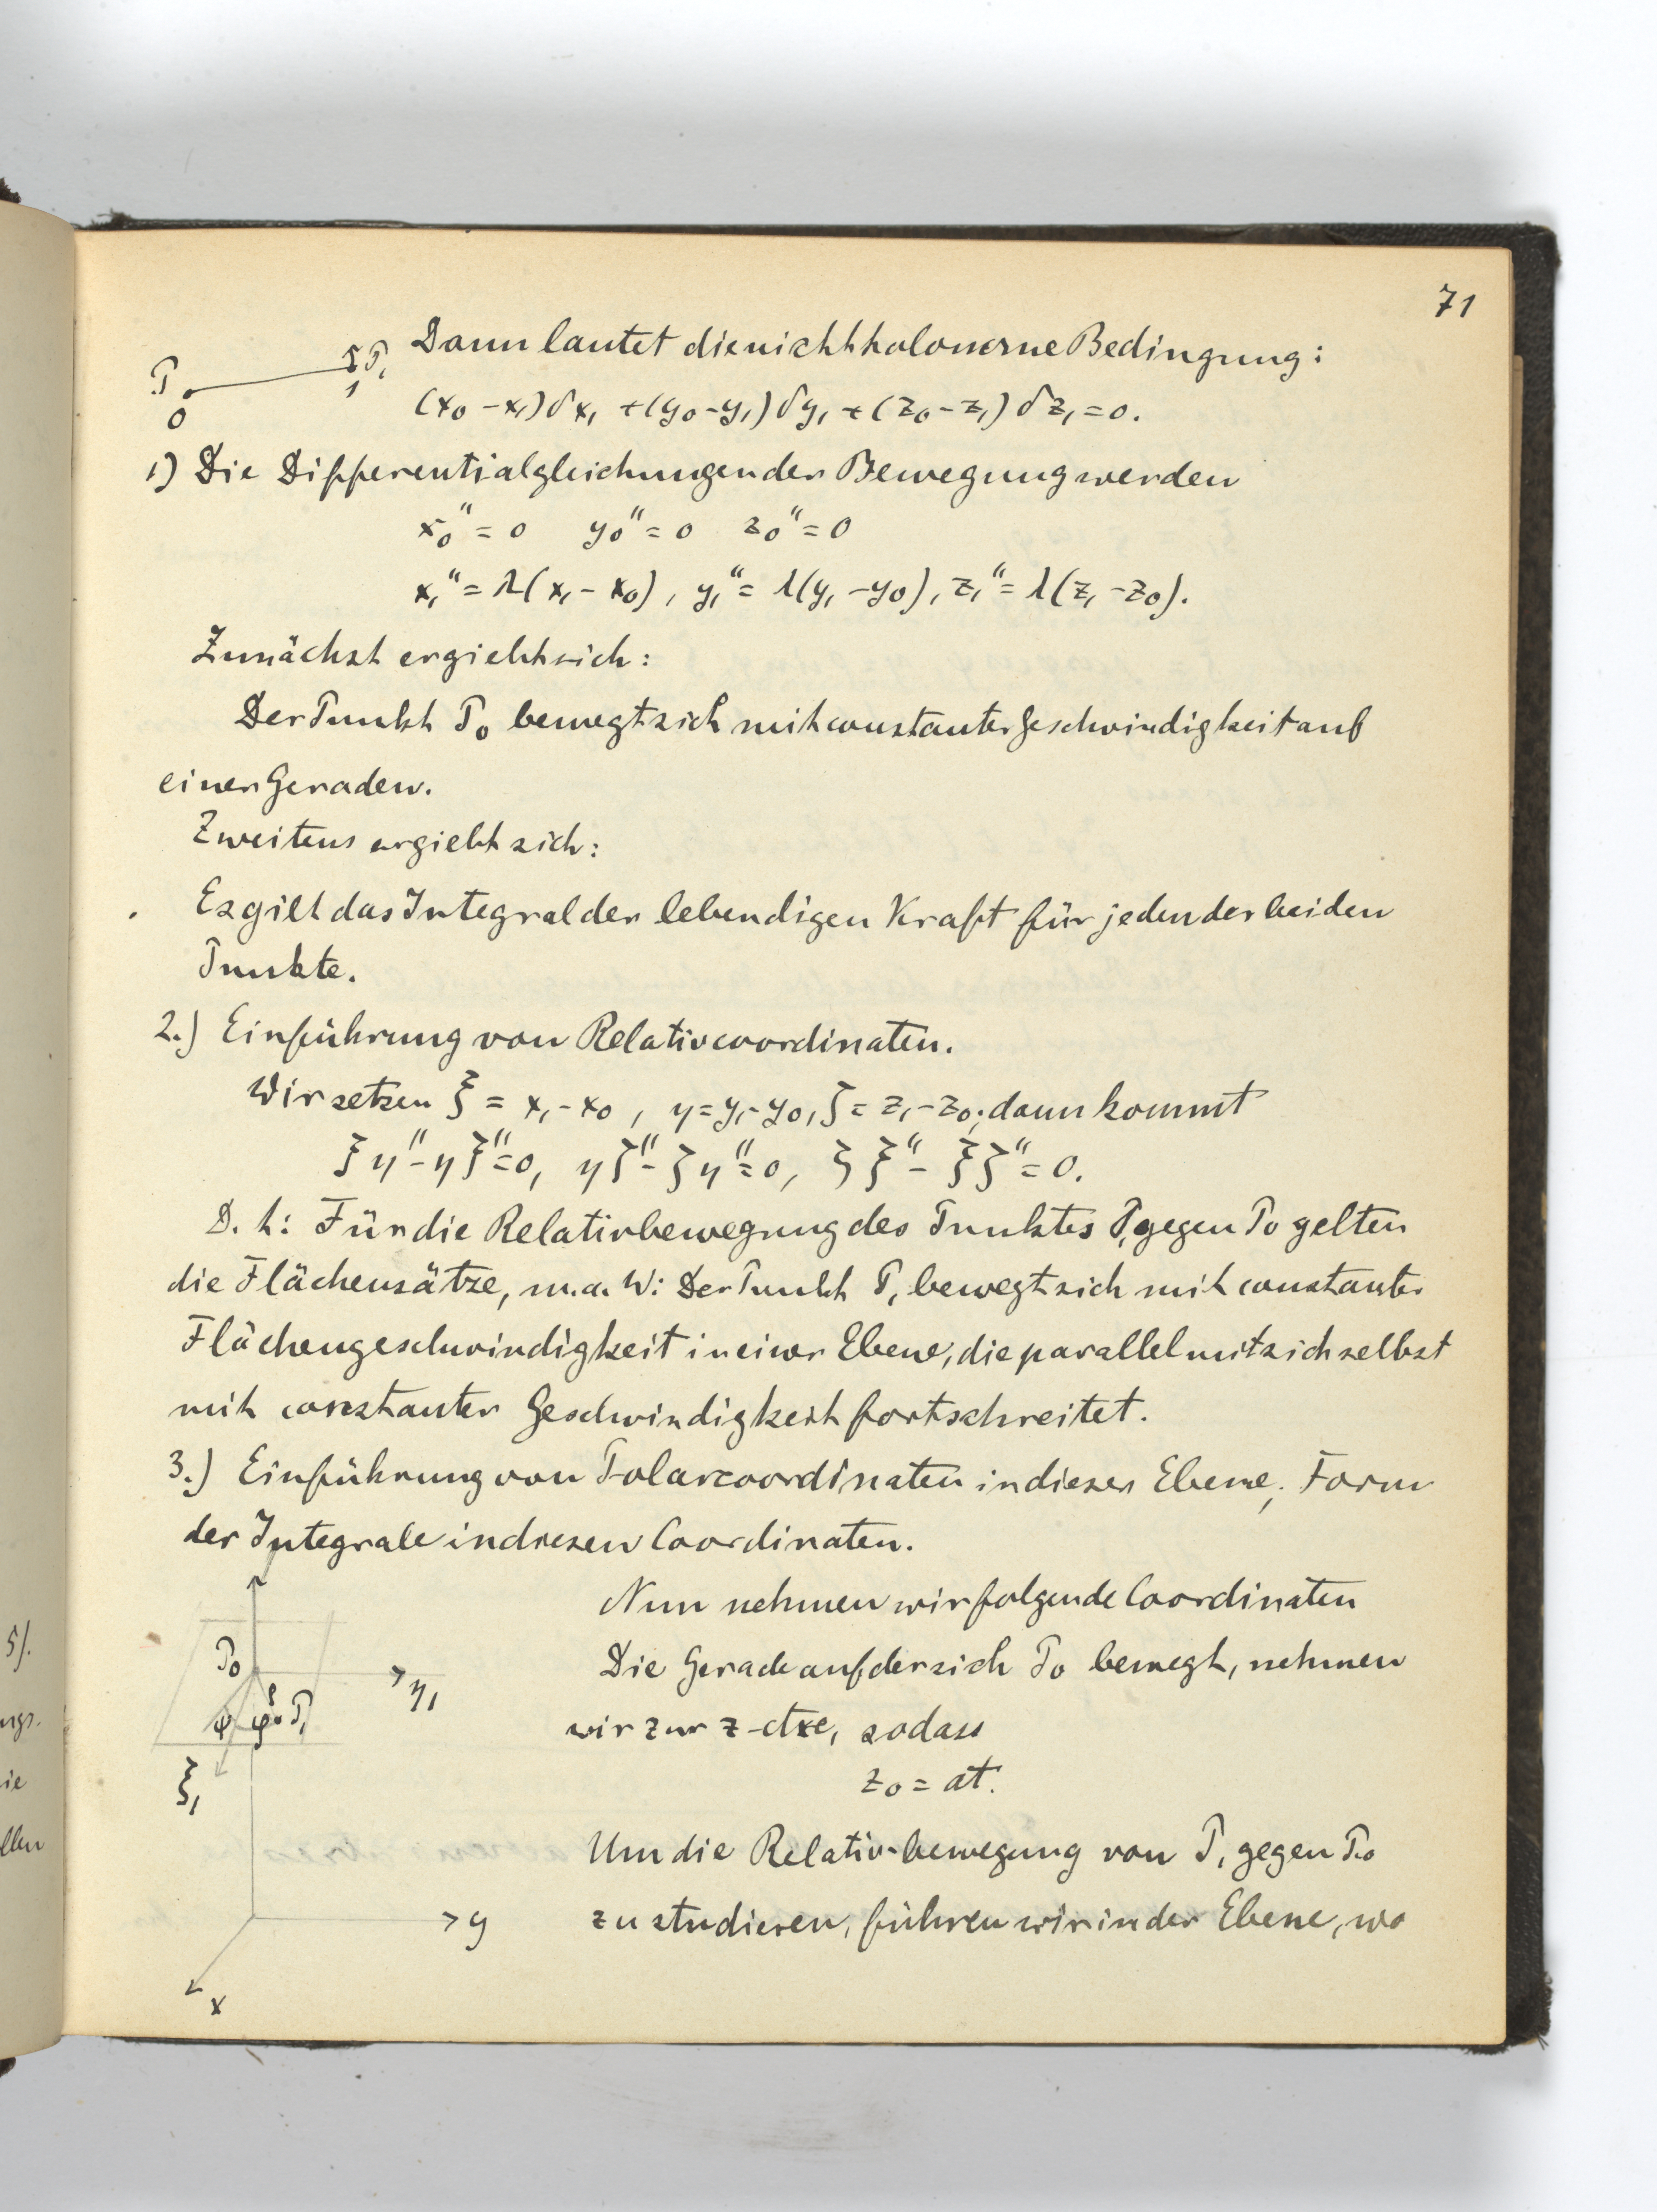 71
Dann lautet die nichtholonome Bedingung:
P P₁
0 1
(x₀ - x₁) δx₁ + (y₀ - y₁) δy₁ + (z₀ - z₁) δz₁ = 0.
1) Die Differentialgleichungen der Bewegung werden
x₀" = 0 y₀" = 0 z₀" = 0
x₁" = λ(x₁ - x₀), y₁" = λ(y₁ - y₀), z₁" = λ(z₁ - z₀).
Zunächst ergiebt sich:
Der Punkt P₀ bewegt sich mit constanter Geschwindigkeit auf
einer Geraden.
Zweitens ergiebt sich:
Es gilt das Integral der lebendigen Kraft für jeden der beiden
Punkte.
2.) Einführung von Relativcoordinaten.
Wir setzen ξ = x₁ - x₀, η = y₁ - y₀, ζ = z₁ - z₀; dann kommt
ξη" - ηξ" = 0, ηζ" - ζη" = 0, ζξ" - ξζ" = 0.
D. h: Für die Relativbewegung des Punktes P₁ gegen P₀ gelten
die Flächensätze, m. a. W: Der Punkt P₁ bewegt sich mit constanter
Flächengeschwindigkeit in einer Ebene, die parallel mit sich selbst
mit constanter Geschwindigkeit fortschreitet.
3.) Einführung von Polarcoordinaten in dieser Ebene; Form
der Integrale in diesen Coordinaten.
Nun nehmen wir folgende Coordinaten
Die Gerade auf der sich P₀ bewegt, nehmen
wir zur z-Axe, sodass
z₀ = at.
Um die Relativ-bewegung von P₁ gegen P₀
zu studieren, führen wir in der Ebene, wo
P₀
η₁
ψ φ P₁
ξ₁
y
x
5).
ngs.
ie
llen